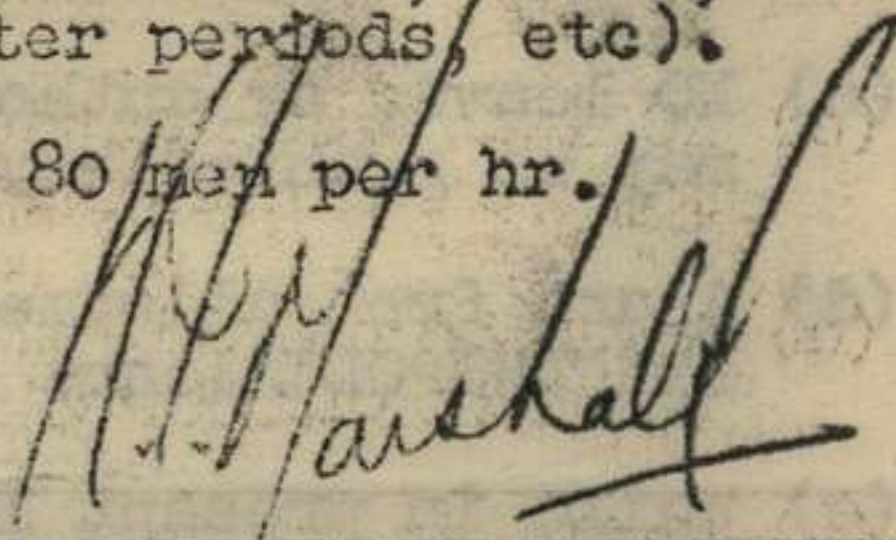 ter periods, etc).
80 men per hr.
Marshall